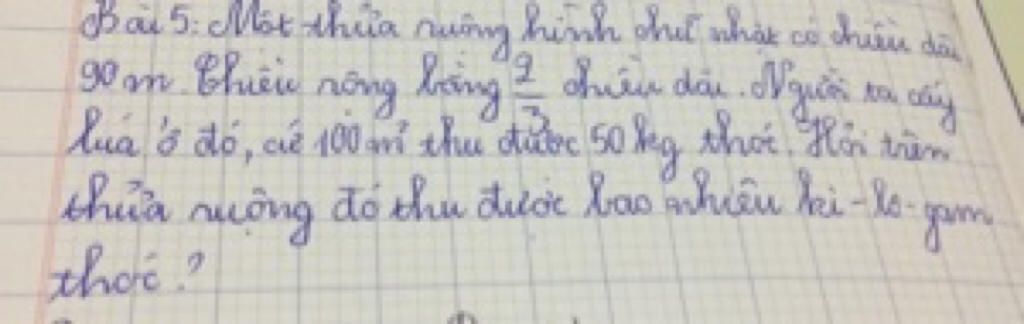 Bài 5: Một thửa ruộng hình chữ nhật có chiều dài
90m. Chiều rộng bằng 2/3 chiều dài. Người ta cấy
luá ở đó, cứ 100m² thu được 50kg thóc. Hỏi trên
thửa ruộng đó thu được bao nhiêu ki-lô-gam
thóc?